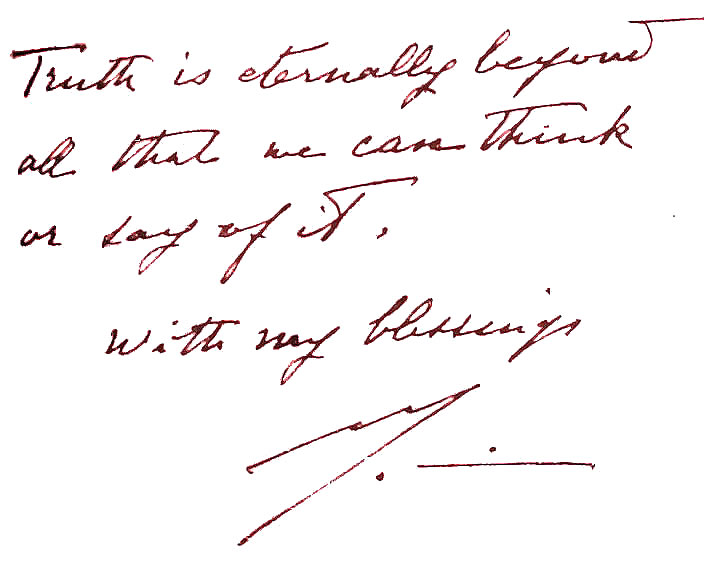 Truth is eternally beyond
all that we can think
or say of it.
With my blessings